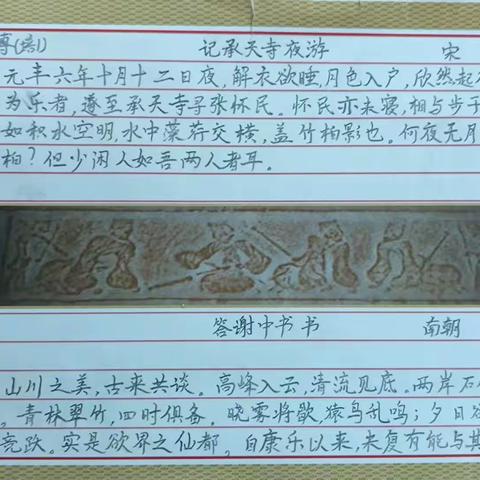 尊(語1)
记承天寺夜游 宋
元丰六年十月十二日夜,解衣欲睡,月色入户,欣然起
为乐者,遂至承天寺寻张怀民。怀民亦未寝,相与步于
如积水空明,水中藻荇交横,盖竹柏影也。何夜无月
柏?但少闲人如吾两人者耳。
答谢中书书 南朝
山川之美,古来共谈。高峰入云,清流见底。两岸石
。青林翠竹,四时俱备。晓雾将歇,猿鸟乱鸣;夕日
竞跃。实是欲界之仙都,自康乐以来,未复有能与其